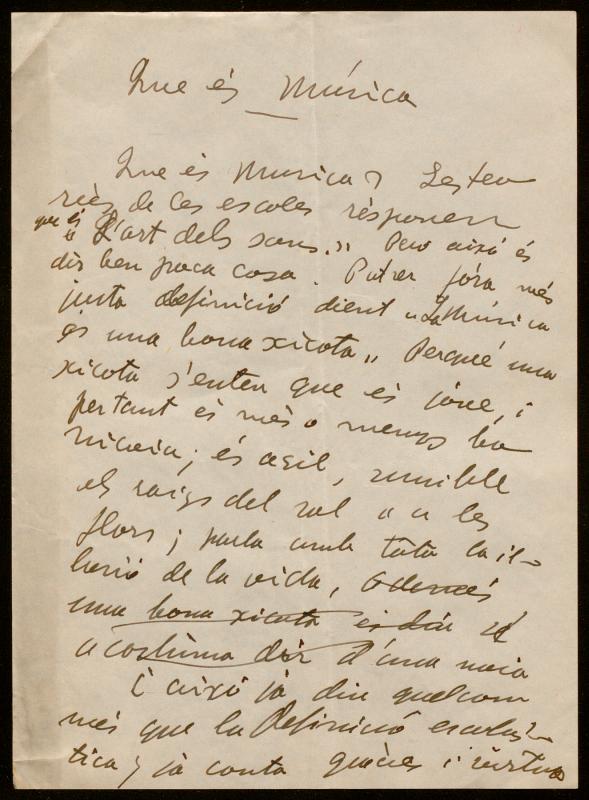 Que és Música
Que és Musica? Les teu
ries de les escoles résponen
que és
"L'art dels sons." Pero aixó és
dir ben poca cosa. Potser fóra més
justa definició dient "La Música
és una bona xicota" Perqué una
xicota s'enten que és jóve, i
pertant és més o menys bo
nicoia; és agil, sensible
als raigs del sol o a les
flors; parla amb tota la il-
lusió de la vida, ademés
una bona xicota es diu si
acostuma dir d'una noia
I aixó já diu quelcom
més que la definició escolás-
tica; já conta gracies i virtus